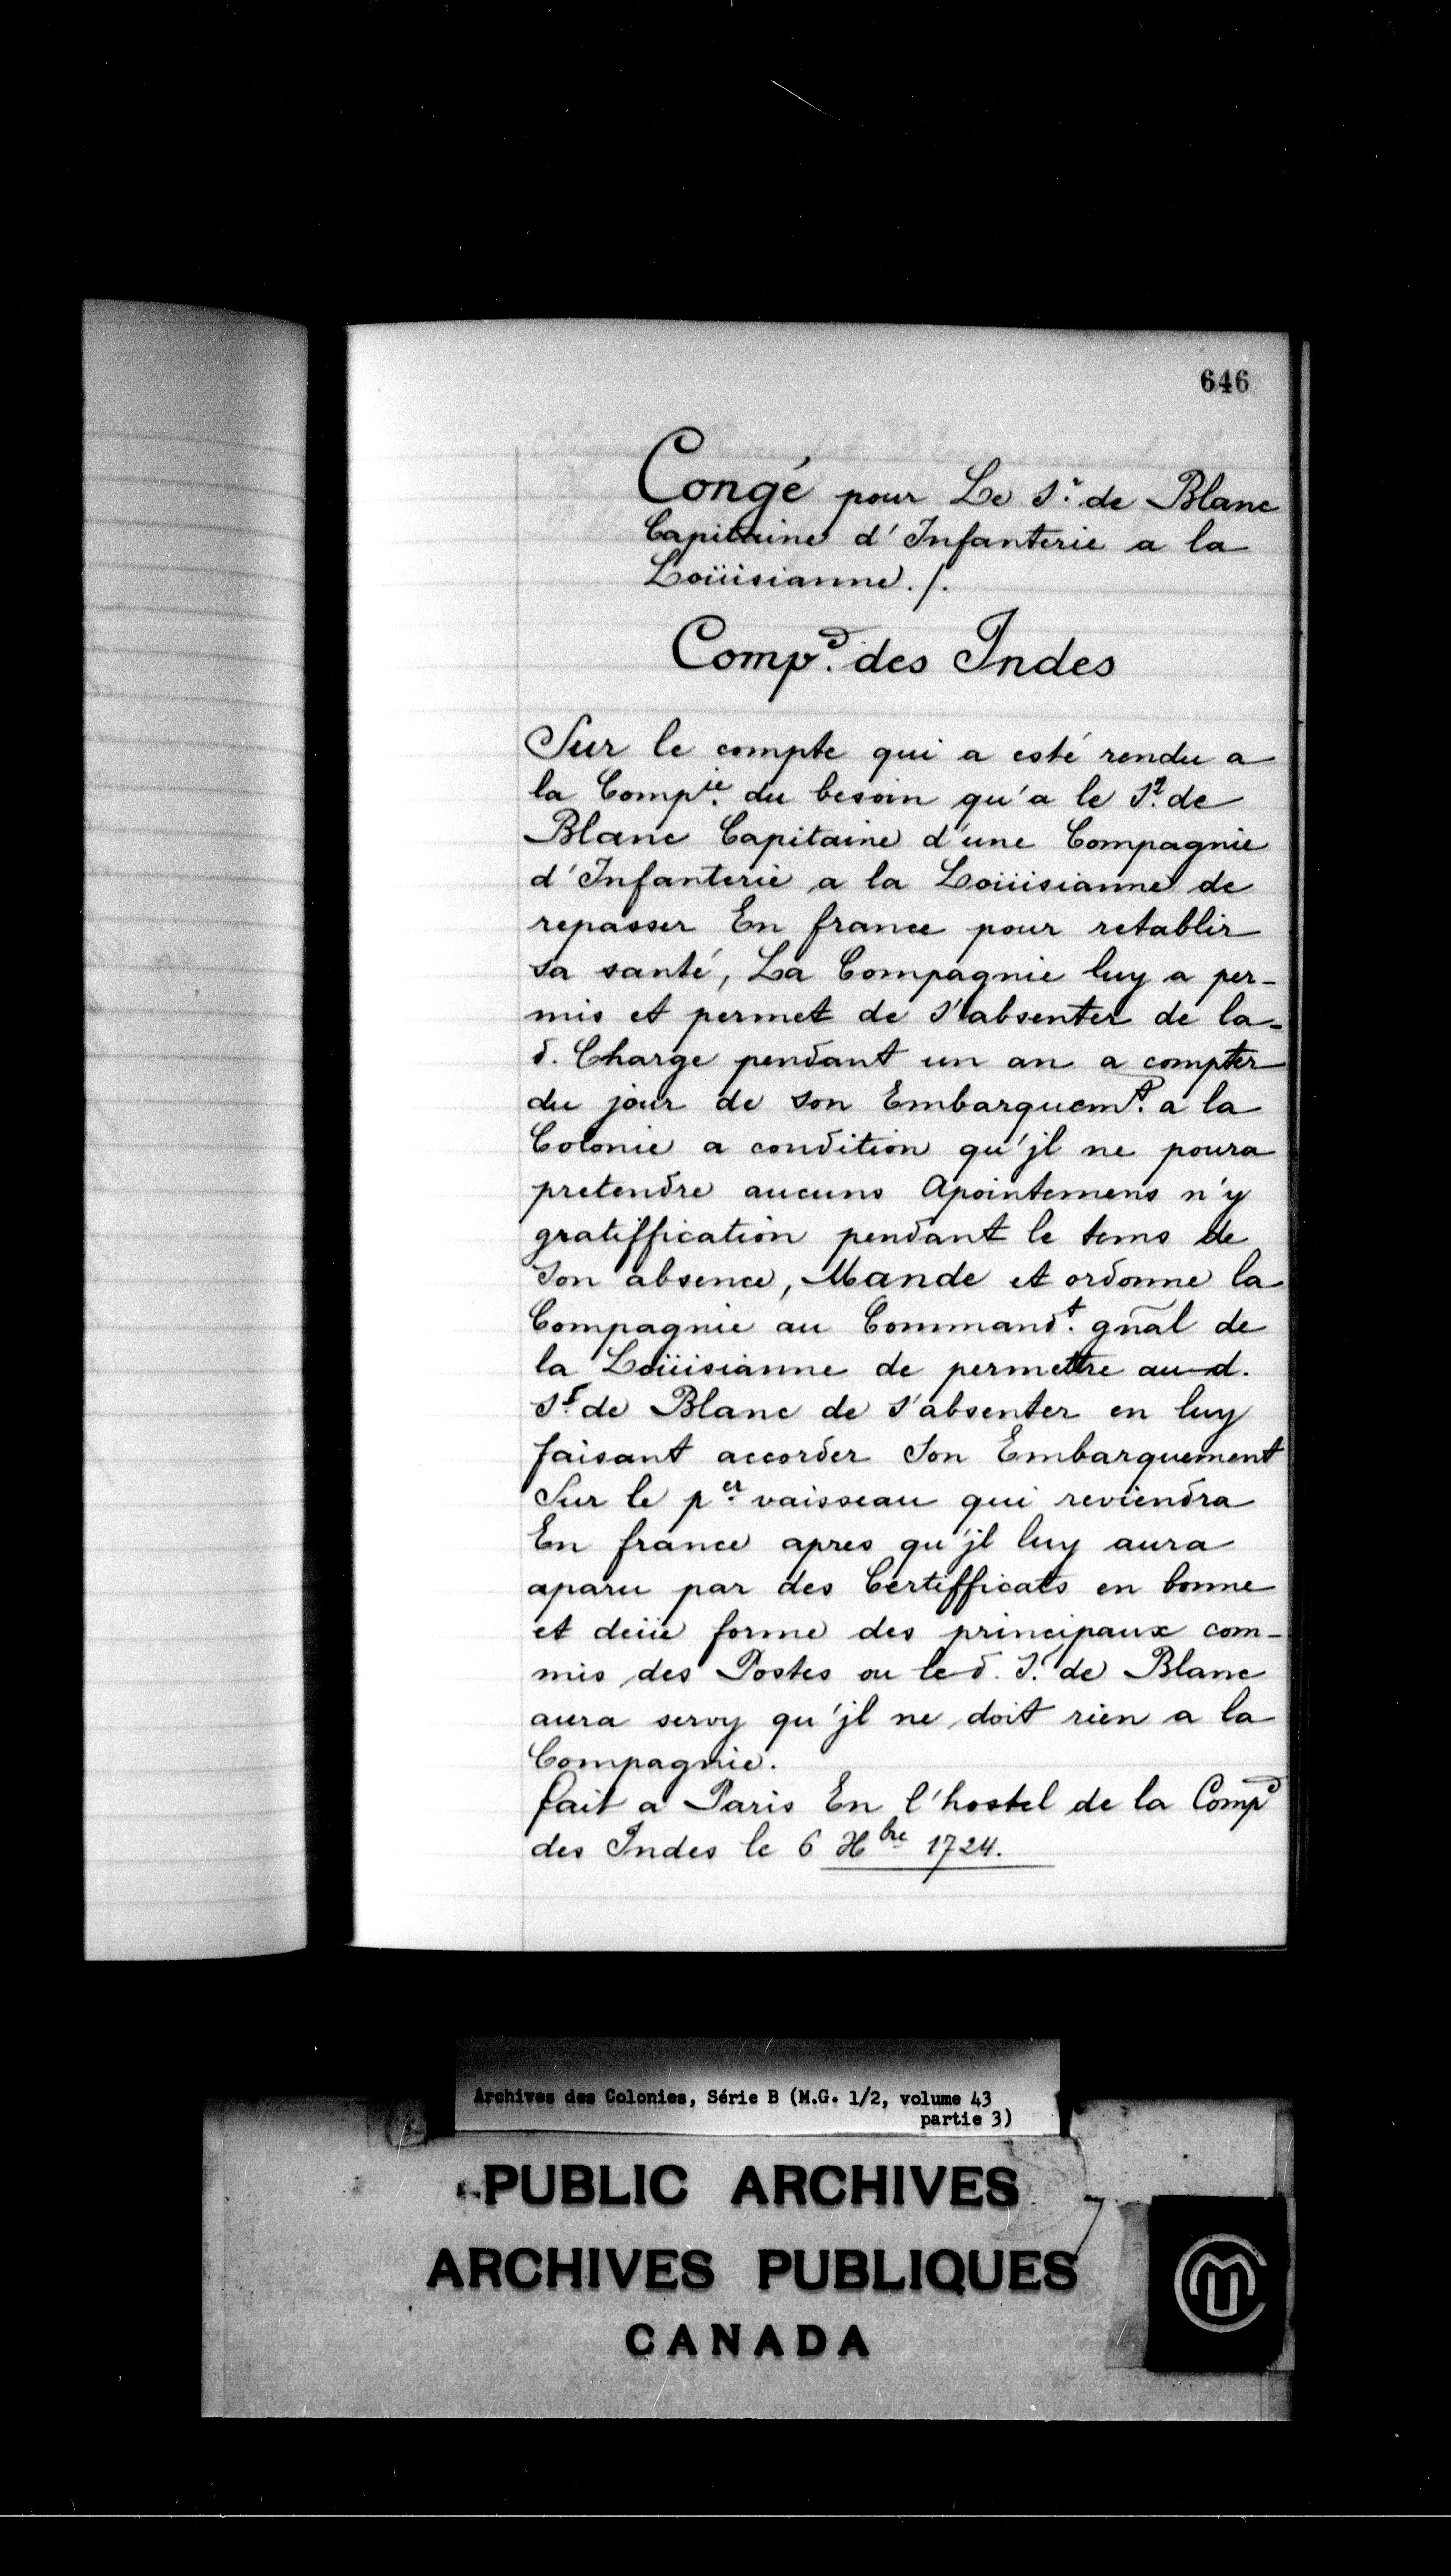 646
Congé pour Le S.r de Blanc
Capitaine d'Infanterie a la
Loüisianne./.
Comp.e des Indes
Sur le compte qui a esté rendu a
la Comp.ie du besoin qu'a le S.r de
Blanc Capitaine d'une Compagnie
d'Infanterie a la Loüisianne de
repasser En france pour retablir
sa santé, La Compagnie luy a per-
mis et permet de s'absenter de la-
d. Charge pendant un an a compter
du jour de son Embarquem.t a la
Colonie a condition qu'jl ne poura
pretendre aucuns Apointemens n'y
gratiffication pendant le tems de
Son absence, Mande et ordonne la
Compagnie au Command.t gñal de
la Loüisianne de permettre au-d.
S.r de Blanc de s'absenter en luy
faisant accorder Son Embarquement
Sur le p.er vaisseau qui reviendra
En france apres qu'jl luy aura
aparu par des Certifficats en bonne
et deüe forme des principaux com-
mis des Postes ou le d. S. de Blanc
aura servy qu'jl ne doit rien a la
Compagnie.
fait a Paris En l'hostel de la Comp.e
des Indes le 6 Xbre 1724.
Archives des Colonies, Série B (M.G. 1/2, volume 43
partie 3)
PUBLIC ARCHIVES
ARCHIVES PUBLIQUES
CANADA